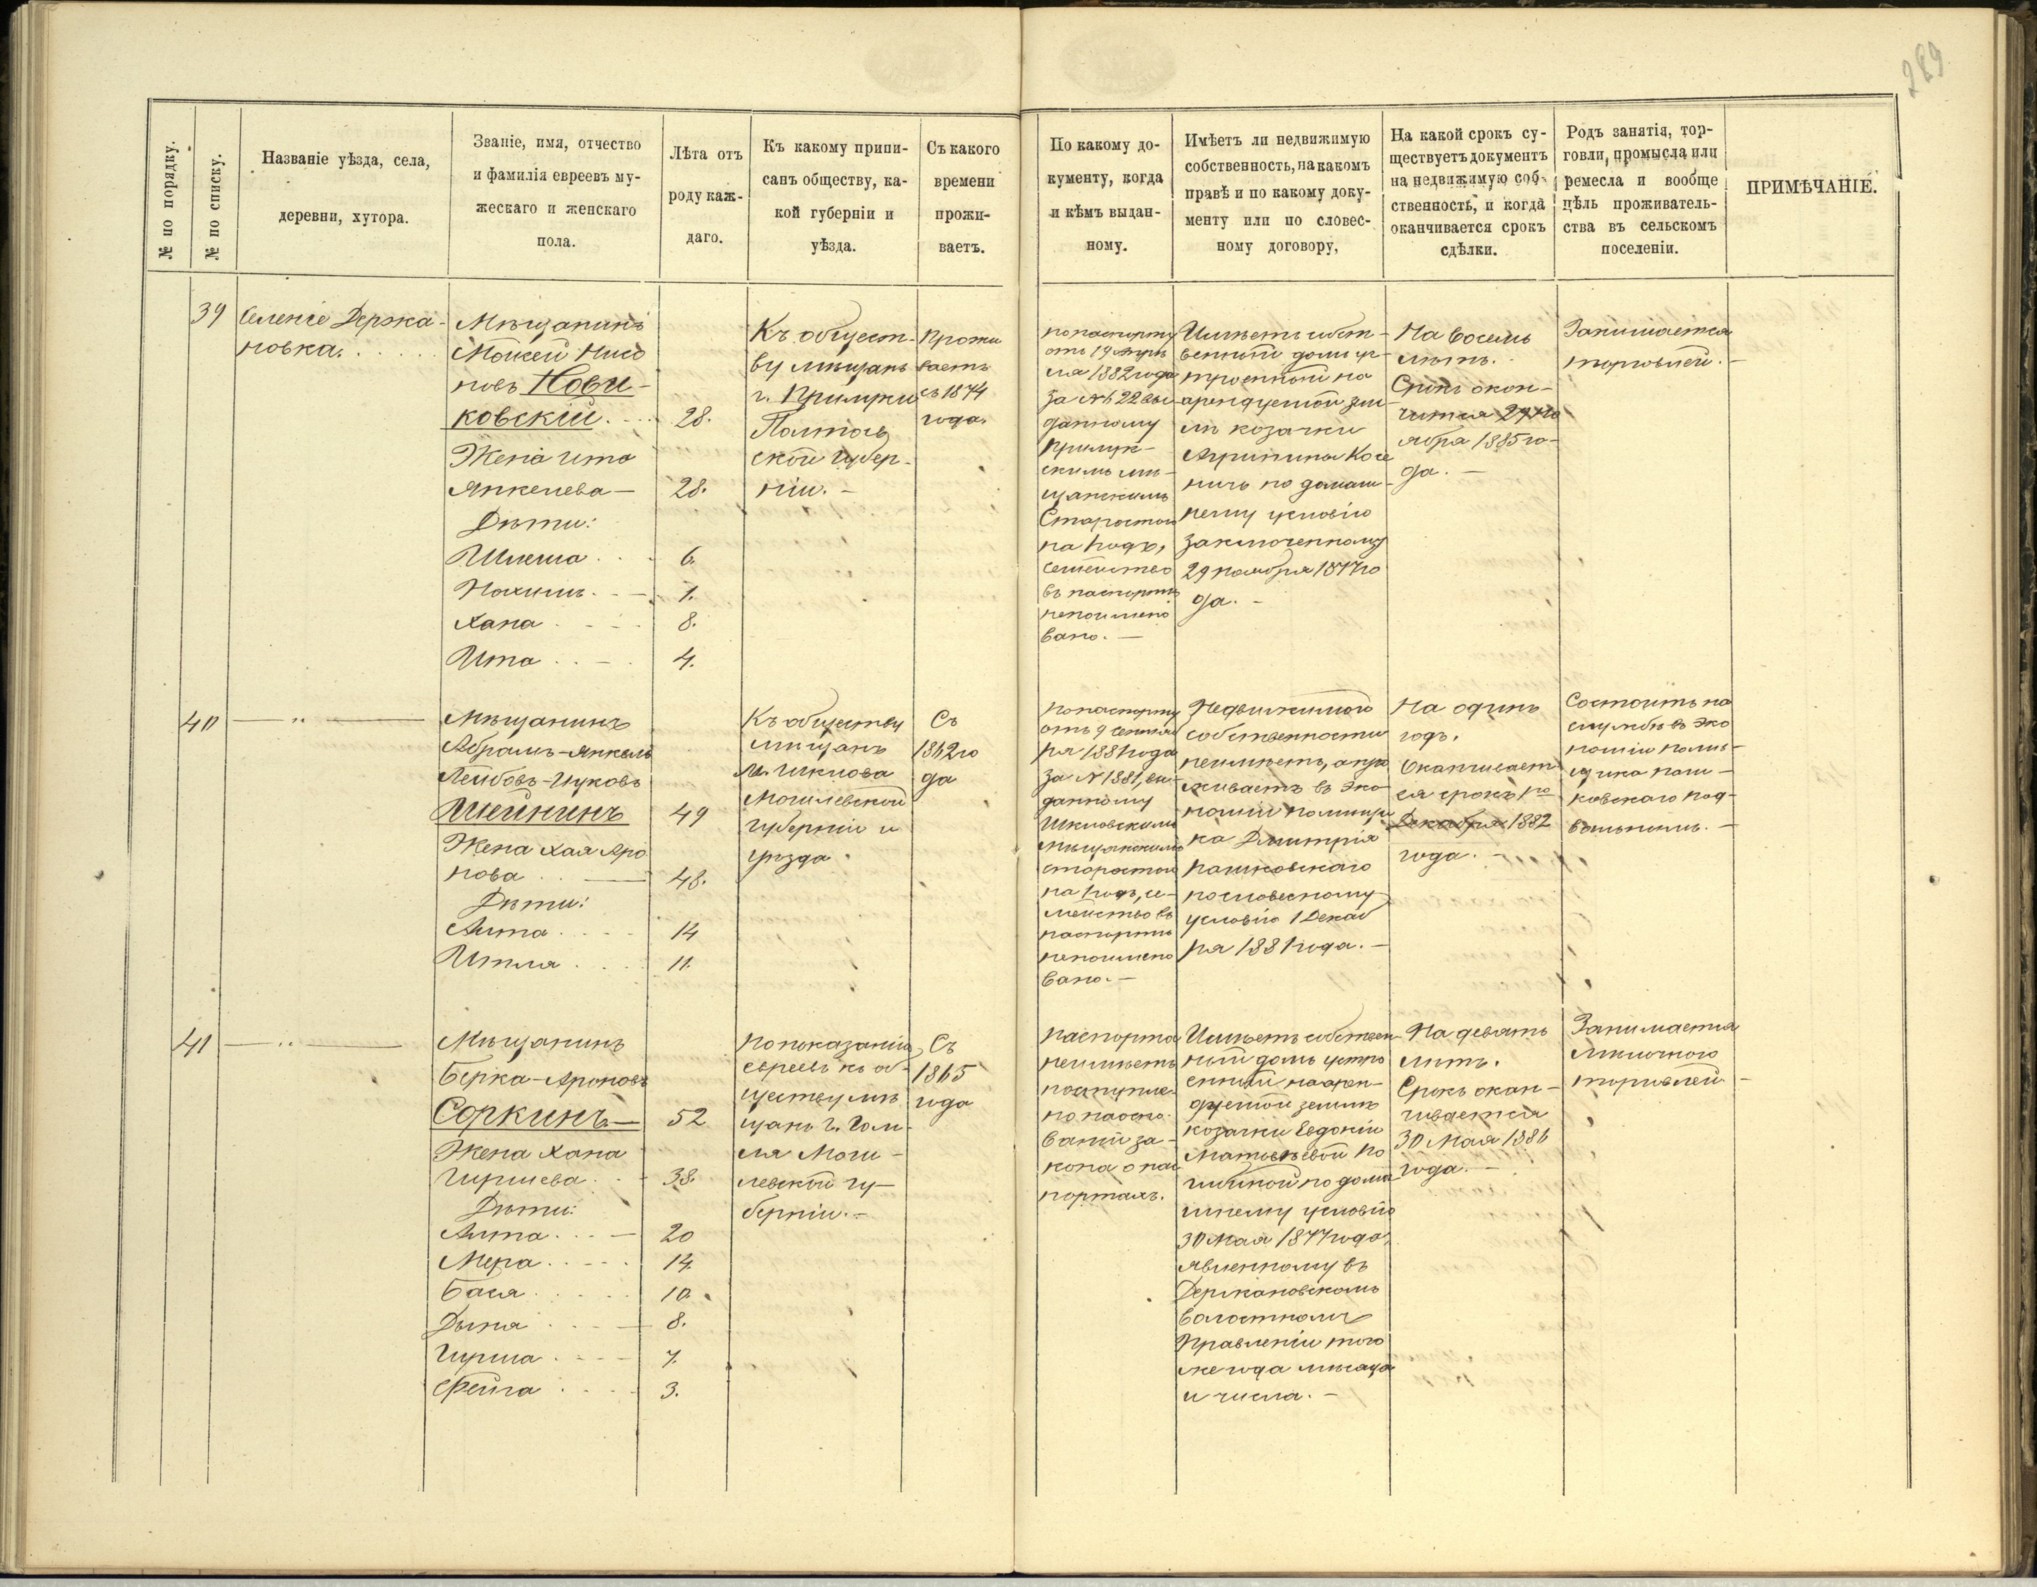 289
№ по порядку.
№ по списку.
Названіе уѣзда, села,
деревни, хутора.
Званіе, имя, отчество
и фамилія евреевъ му-
жескаго и женскаго
пола.
Лѣта отъ
роду каж-
даго.
Къ какому припи-
санъ обществу, ка-
кой губерніи и
уѣзда.
Съ какого
времени
прожи-
ваетъ.
По какому до-
кументу, когда
и кѣмъ выдан-
ному.
Имѣетъ ли недвижимую
собственность, на какомъ
правѣ и по какому доку-
менту или по словес-
ному договору,
На какой срокъ су-
ществуетъ документъ
на недвижимую соб-
ственность, и когда
оканчивается срокъ
сдѣлки.
Родъ занятія, тор-
говли, промысла или
ремесла и вообще
цѣль проживатель-
ства въ сельскомъ
поселеніи.
ПРИМѢЧАНІЕ.
39
Селеніе Держа-
новка.
Мѣщанинъ
Мойсей Нисо
новъ Нови-
ковскій. 28.
Жена Ита
Янкелева — 28.
Дѣти:
Шлема 6.
Нохимъ. 1.
Хана 8.
Ита 4.
Къ общест-
ву мѣщанъ
г. Прилуки
Полтав
ской губер-
ніи. —
Прожи
ваетъ
съ 1874
года.
по паспорту
отъ 19
ля 1882 года
за № 22 вы-
данному
Прилук-
скимъ мѣ-
щанскимъ
Старостой
на годъ,
семейство
въ паспортѣ
непоимено
вано. —
Имѣетъ собст-
венный домъ ус-
троенный на
арендуемой зем-
лѣ козачки
Агрипины
по домаш-
нему условію
заключенному
29 ноября 1877 го
да. —
На восемь
лѣтъ.
Срокъ окон-
чится 29 но
ября 1885 го-
да. —
Занимается
торговлей. —
40
— " —
Мѣщанинъ
Абрамъ-Янкель
Лейбовъ-Ицковъ
Шейнинъ 49
Жена Хая Аро
нова 48.
Дѣти:
Алта 14
Итля 11.
Къ обществу
мѣщанъ
м. Шклова
Могилевской
губерніи и
уѣзда.
Съ
1862 го
да
по паспорту
отъ 9 сентяб
ря 1881 года
за № 1381, вы-
данному
Шкловскимъ
мѣщанскимъ
старостой
на годъ, се-
мейство въ
паспортѣ
непоимено
вано. —
Недвижимой
собственности
неимѣетъ, а про
живаетъ въ эко-
номіи помѣщи
ка Дмитрія
Пашковскаго
по словесному
условію 1 Декаб
ря 1881 года. —
На одинъ
годъ.
Оканчивает
ся срокъ 1го
Декабря 1882
года. —
Состоитъ на
службѣ въ эко
номіи помѣ-
щика Паш-
ковскаго под-
вальнымъ. —
41
— " —
Мѣщанинъ
Берка-Ароновъ
Соркинъ — 52
Жена Хана
Гиршева 38.
Дѣти:
Алта 20
Мера 14
Бася 10.
Дыня 8.
Гирша 7.
Фейга 3.
По показанію
еврей къ об-
ществу мѣ
щанъ г. Гом-
ля Моги-
левской гу-
берніи. —
Съ
1865
года
Паспорта
неимѣетъ
поступле-
но на осно-
ваніи за-
кона о пас
портахъ.
Имѣетъ собствен
ный домъ устро
енный на арен-
дуемой землѣ
козачки Евдокіи
Матвѣевой по
домаш
нему условію
30 мая 1877 года,
явленному въ
Держановскомъ
волостномъ
Правленіи того
же года мѣсяца
и числа. —
На девять
лѣтъ.
Срокъ окан-
чивается
30 мая 1886
года. —
Занимается
мѣлочною
торговлей —